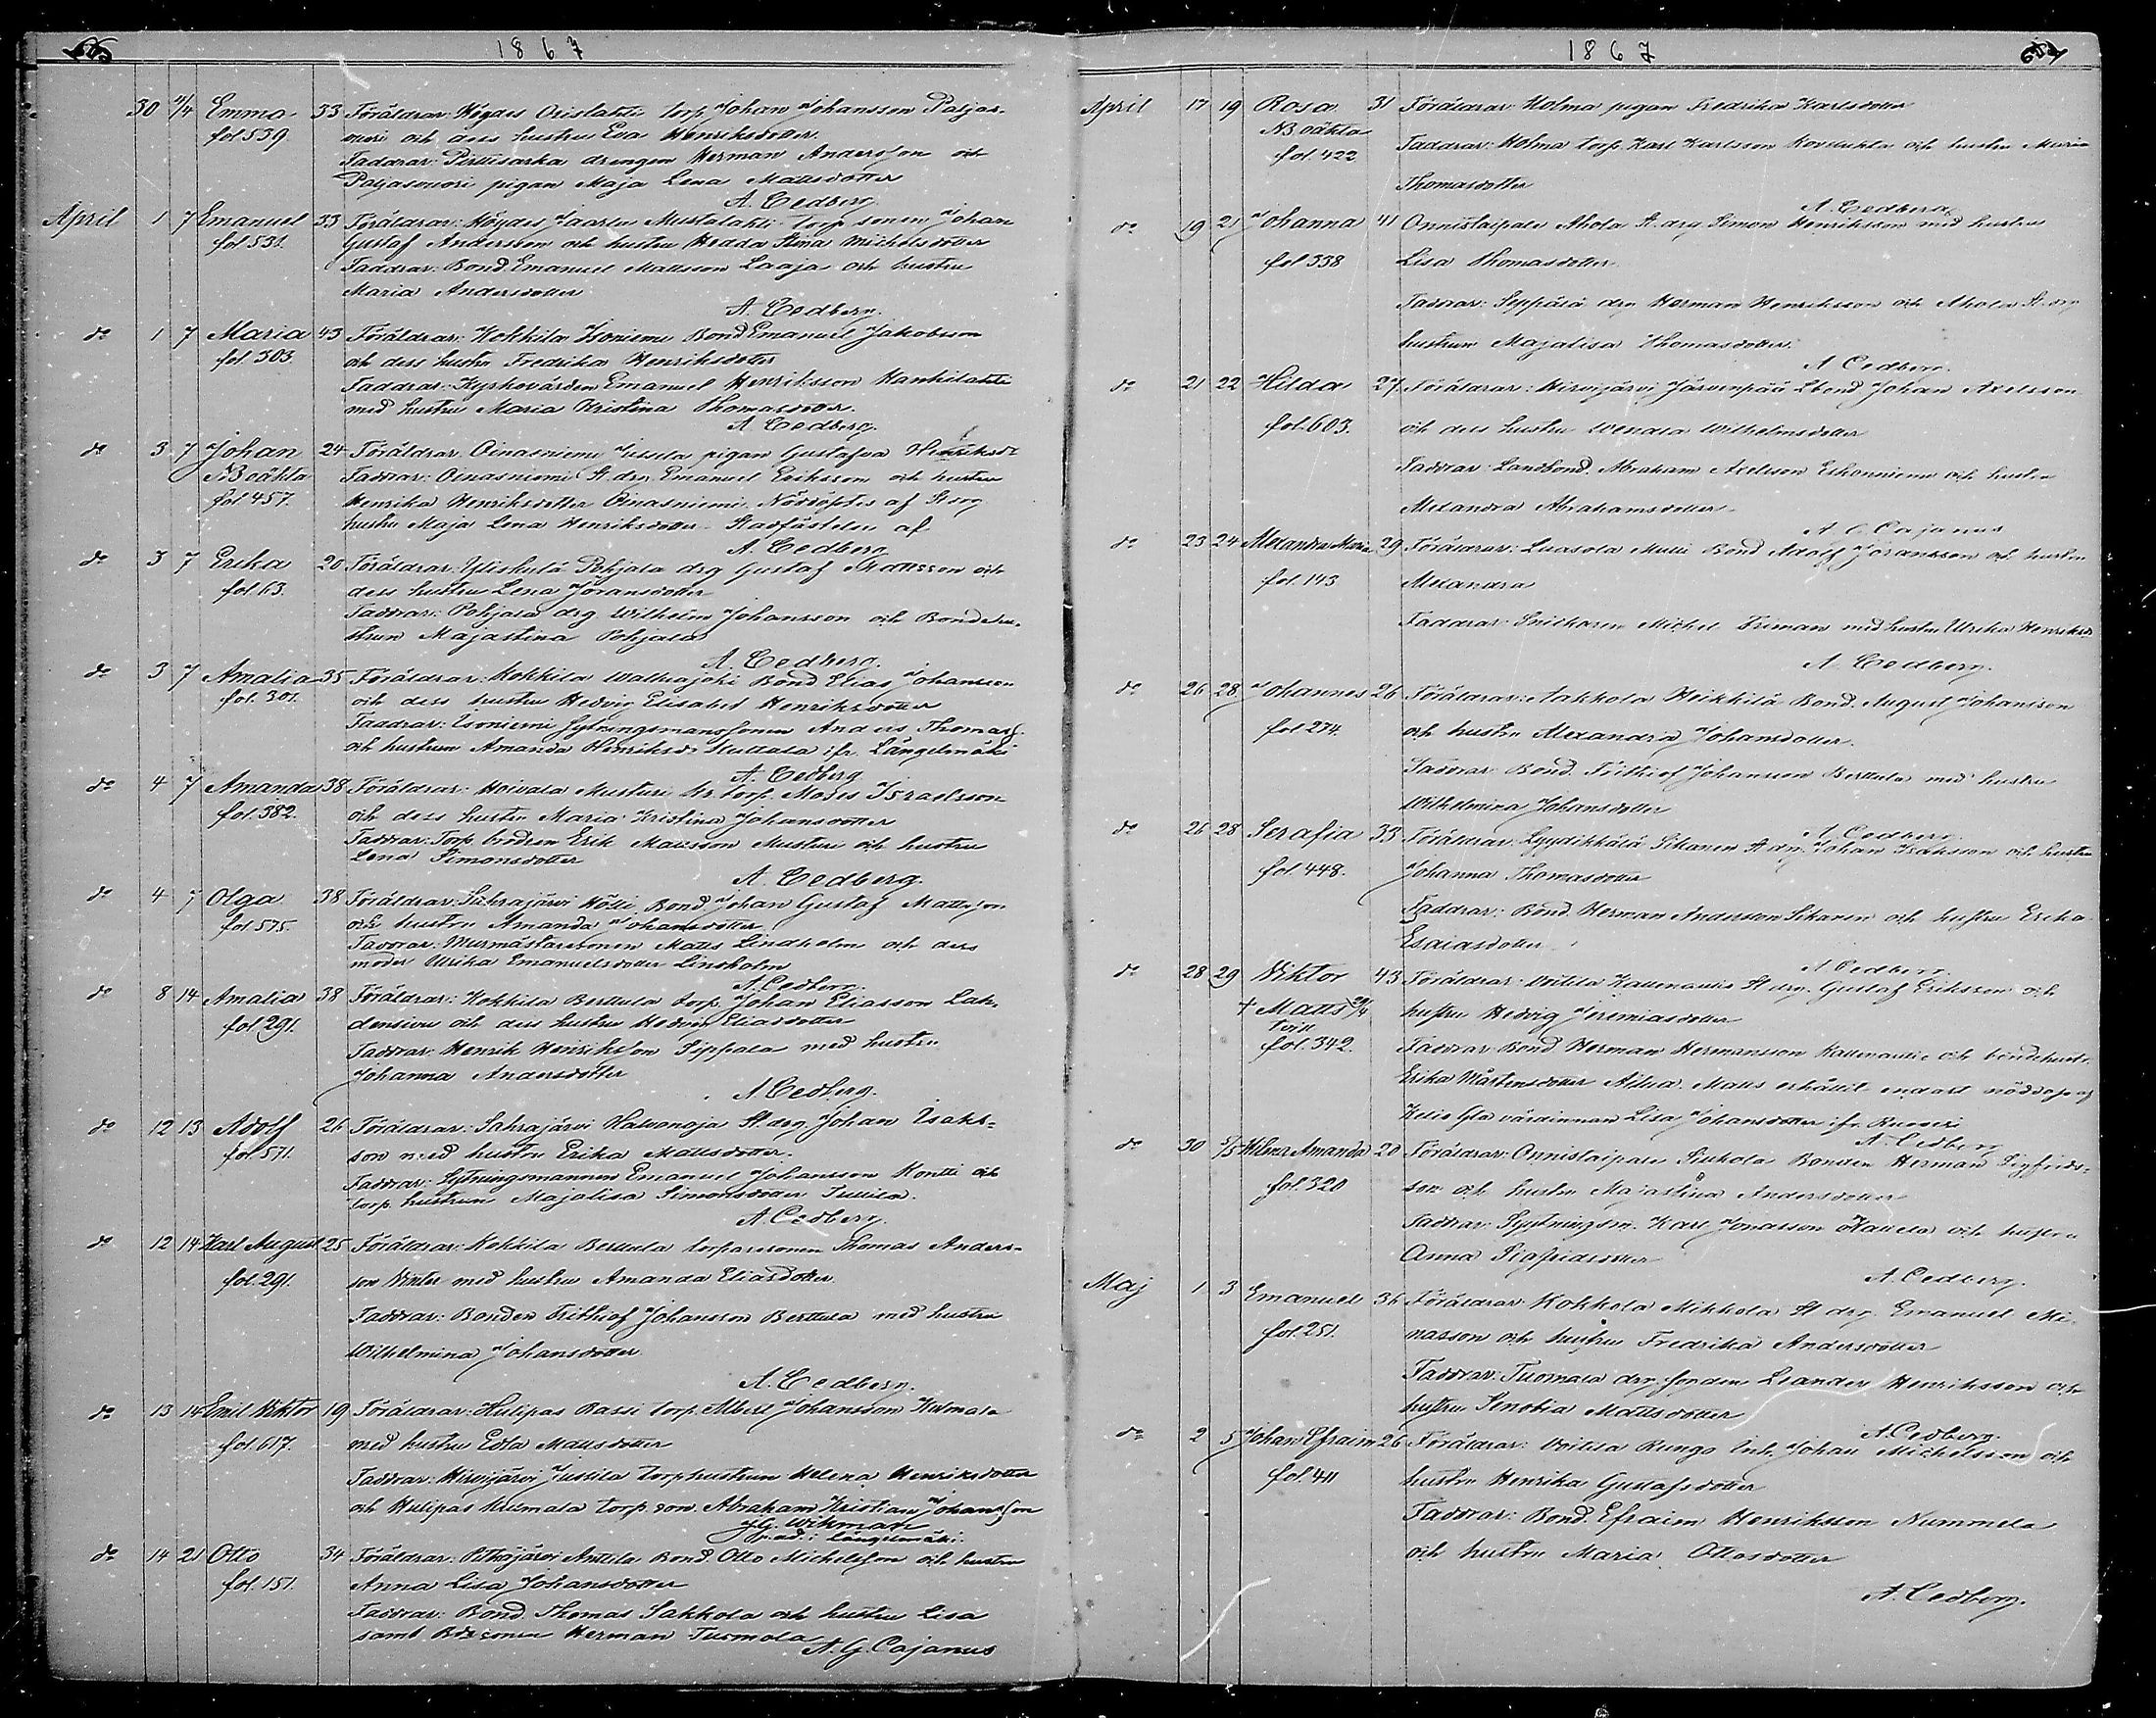 1867
30 1/4 Emma 33 Föräldrar: Höydes Orislahti torp. Johan Johansson Paljas-
fol 539. vuori och dess hustru Eva Henriksdotter.
Faddrar: drengen Herman Andersson och
Paljasvuori pigan Maja Lena Mattsdotter
A. Cedberg.
April 1 7 Emanuel 33 Föräldrar: Höydes Jaartu Mustalahti torp sonen Johan
fol 531. Gustaf Andersson och hustru Stina Michelsdotter
Faddrar: Bond Emanuel Mattsson Laaja och hustru
Maria Andersdotter
A. Cedberg.
do 1 7 Maria 43 Föräldrar: Kokkila Isoniemi Bond Emanuel Jakobsson
fol. 303. och dess hustru Fredrika Henriksdotter
Faddrar: Kyrkovärden Emanuel Henriksson Hankilahti
med hustru Maria Kristina Thomasdotter.
A. Cedberg.
do 3 7 Johan 24 Föräldrar: Oinasniemi Jussila pigan Gustafva Henriksdr
NB oäkta Faddrar: Oinasniemi St. drg. Emanuel Eriksson och hustru
fol 457. Henrika Henriksdotter Oinasniemi. Nöddöptes af St drg
hustru Maja Lena Henriksdotter. Stadfästelse af
A. Cedberg
do 3 7 Erika 20 Föräldrar: Yliskylä Pohjala drg Gustaf Mattsson och
fol 63. dess hustru Lena Göransdotter
Faddrar: Pohjala drg Wilhelm Johansson och Bondehu-
strun Majastina Pohjala
A. Cedberg.
do 3 7 Amalia 35 Föräldrar: Kokkila Walkiajoki Bond Elias Johansson
fol. 301. och dess hustru Hedvig Elisabet Henriksdotter
Faddrar: Isoniemi Sytningsmanssonen Anders Thomass.
och hustrun Amanda Henriksdr Kuttala ifr. Längelmäki
A. Cedberg
do 4 7 Amanda 38 Föräldrar: Hoivala Musturi torp. Moses Israelsson
fol. 382. och dess hustru Maria Kristina Johansdotter
Faddrar: Torp. brodren Erik Mattsson Musturi och hustru
Lena Simonsdotter
A. Cedberg.
do 4 7 Olga 38 Föräldrar: Sahrajärvi Hölli Bond Johan Gustaf Mattsson
fol 575. och hustru Amanda Johansdotter
Faddrar: Murmästaresonen Matts Lindholm och dess
moder Ulrika Emanuelsdotter Lindholm
A. Cedberg.
do 8 14 Amalia 38 Föräldrar: Kokkila Berttula torp. Johan Eliasson Lah-
fol. 291. densivu och dess hustru Hedvig Eliasdotter
Faddrar: Henrik Henriksson Sippala med hustru
Johanna Andersdotter
A. Cedberg.
do 12 13 Adolf 26 Föräldrar: Sahrajärvi Halvanoja St. drg. Johan Isaks-
fol. 571. son med hustru Erika Mattsdotter.
Faddrar: Sytningsmannen Emanuel Johansson Kontti och
torp. hustrun Majalisa Simonsdotter Tullila.
A. Cedberg.
do 12 14 Karl August 25 Föräldrar: Kokkila Berttula torparesonen Thomas Anders-
fol. 291. son Winter med hustru Amanda Eliasdotter
Faddrar: Bonden Frithiof Johansson Berttula med hustru
Wilhelmina Johansdotter
A. Cedberg.
do 13 14 Emil Viktor 19 Föräldrar: Hulipas Rassi torp. Albert Johansson Kulmala
fol. 617. med hustru Edla Mattsdotter
Faddrar: Hirvijärvi Jussila torp hustrun Helena Henriksdotter
och Hulipas Kulmala torp. son Abraham Kristian Johansson
G. Wikman
p. ad. i Längelmäki.
do 14 21 Otto 34 Föräldrar: Pitkäjärvi Anttila Bond Otto Michelsson och hustru
fol. 151. Anna Lisa Johansdotter
Faddrar: Bond. Thomas Sakkola och hustru Lisa
samt Bdesonen Herman Tuomola
A. G. Cajanus
1867
April 17 19 Rosa 31 Föräldrar: Holma pigan Fredrika Karlsdotter
NB oäkta
fol. 422 Faddrar: Holma torp. Karl Karlsson och hustru Maria
Thomasdotter
A. Cedberg.
do 19 21 Johanna 41 Onnistaipale Ahola St. drg. Simon Henriksson med hustru
fol 338 Lisa Thomasdotter.
Faddrar: Seppälä drg Herman Henriksson och Ahola St. drg
hustrun Majalisa Thomasdotter.
A. Cedberg.
do 21 22 Hilda 27 Föräldrar: Hirvijärvi Järvenpää Lbond. Johan Axelsson
fol. 603. och dess hustru Wendla Wilhelmsdotter
Faddrar: Landbond. Abraham Axelsson Eskonniemi och hustru
Alexandra Abrahamsdotter
A. G. Cajanus
do 23 24 Alexandra Maria 29 Föräldrar: Luasola Mulli Bond Adolf Göransson och hustru
fol. 143 Alexandra
Faddrar: Snickaren Michel Friman med hustru Ulrika Henriksdr
A. Cedberg.
do 26 28 Johannes 26 Föräldrar: Aakkola Heikkilä Bond. August Johansson
fol 274. och hustru Alexandra Johansdotter.
Faddrar: Bond. Frithiof Johansson Berttula med hustru
Wilhelmina Johansdotter
A. Cedberg.
do 26 28 Serafia 33 Föräldrar: Lyydikkälä Sikanen St drg. Johan Isaksson och hustru
fol. 448. Johanna Thomasdotter
Faddrar: Bond. Herman Andersson Sikanen och hustru Erika
Esaiasdotter
A. Cedberg.
do 28 29 Viktor 43 Föräldrar: Voitila Kallenautio St drg. Gustaf Eriksson och
† Matts 29/4 hustru Hedvig Jeremiasdotter
tvill
fol. 342. Faddrar: Bond Herman Hermansson Kallenautio och bondehustr.
Erika Mårtensdotter Matts erhållit endast nöddop af
värdinnan Lisa Johansdotter ifr. Ruovesi
A. Cedberg
do 30 5/5 Hilma Amanda 20 Föräldrar: Onnistaipale Siukola Bonden Herman Sigfrids-
fol. 320 son och hustru Majastina Andersdotter
Faddrar: Sytningsm. Karl Jonasson och hustru
Anna Sigfridsdotter
A. Cedberg.
Maj 1 3 Emanuel 36 Föräldrar: Kokkola Mikkola St drg. Emanuel Mi-
fol. 251. nasson och hustru Fredrika Andersdotter
Faddrar: Tuomala drg. Leander Henriksson och
hustru Senobia Mattsdotter
A. Cedberg.
do 2 5 Johan Efraim 26 Föräldrar: Voitila Runga Inh. Johan Michelsson och
fol. 411 hustru Henrika Gustafsdotter
Faddrar: Bond. Efraim Henriksson Nummela
och hustru Maria Ottosdotter
A. Cedberg.